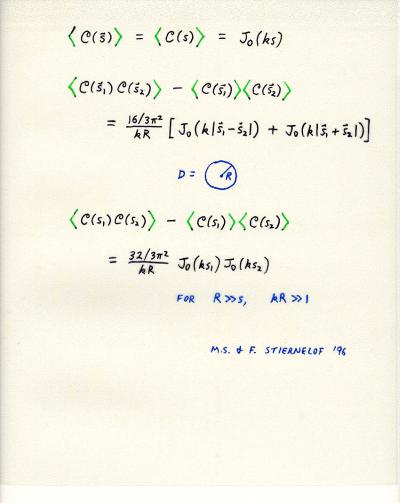 ⟨C(s⃗)⟩ = ⟨C(s)⟩ = J₀(ks)
⟨C(s⃗₁)C(s⃗₂)⟩ − ⟨C(s⃗₁)⟩⟨C(s⃗₂)⟩
= 16/3π² / kR [J₀(k|s⃗₁−s⃗₂|) + J₀(k|s⃗₁+s⃗₂|)]
D = R
⟨C(s₁)C(s₂)⟩ − ⟨C(s₁)⟩⟨C(s₂)⟩
= 32/3π² / kR J₀(ks₁) J₀(ks₂)
FOR R≫s, kR≫1
M.S. & F. STIERNELOF '96